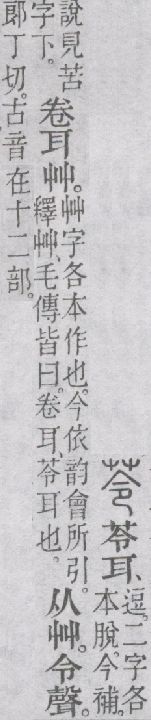 苓 苓耳、逗。二字各本脫。今補。
說見苦字下。卷耳艸。艸字各本作也。今依韵會所引。釋艸、毛傳皆曰。卷耳、苓耳也。从艸。令聲。
郎丁切。古音在十二部。